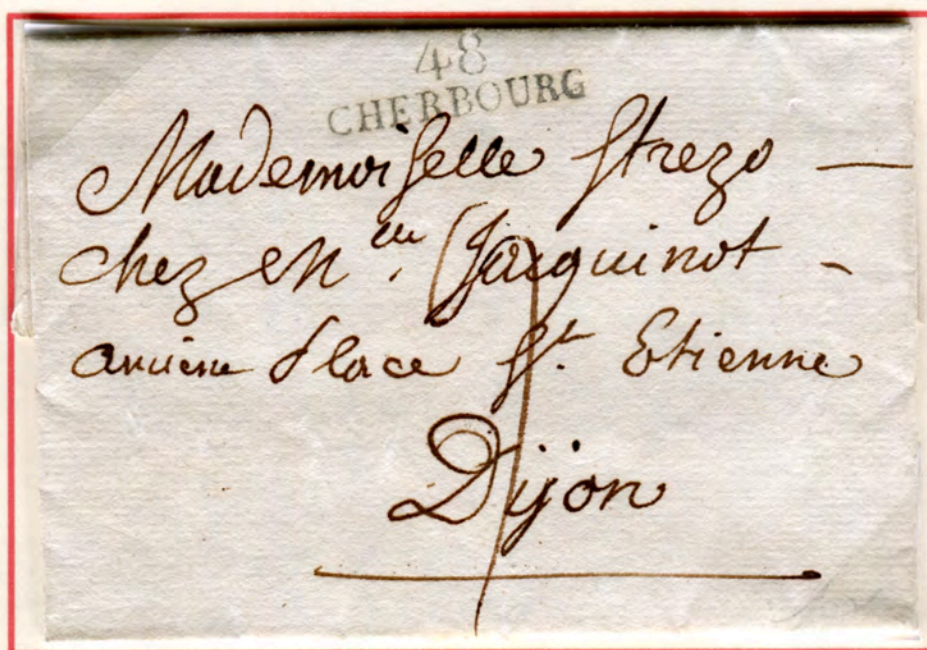 48
CHERBOURG
Mademoiselle Strezo —
chez M.elle Jacquinot -
ancienne Place St. Etienne
Dijon